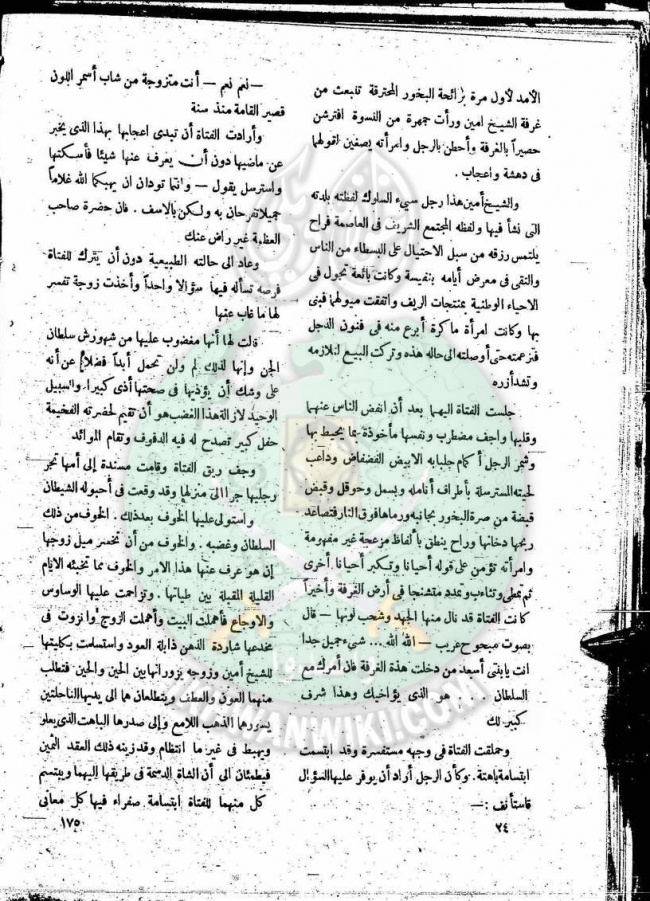 الأمد لأول مرة برائحة البخور المحترقة تنبعث من
غرفة الشيخ امين ورأت جمهرة من النسوة افترشن
حصيراً بالغرفة وأحطن بالرجل وامرأته يصغين لقولهما
فى دهشة واعجاب .
والشيخ أمين هذا رجل سيء السلوك لفظته بلدته
التى نشأ فيها ولفظه المجتمع الشريف فى العاصمة فراح
يلتمس رزقه من سبل الاحتيال على البسطاء من الناس
والتقى فى معرض أيامه بنفيسة وكانت بائعة تجول فى
الاحياء الوطنية بمنتجات الريف واتفقت ميولهما فبنى
بها وكانت امرأة ماكرة أبرع منه فى فنون الدجل
فتزعمته حتى أوصلته الى حاله هذه وتركت البيع لتلازمه
وتشد أزره
جلست الفتاة اليهما بعد أن انفض الناس عنهما
وقلبها واجف مضطرب ونفسها مأخوذة بما يحيط بها
وشمر الرجل أكمام جلبابه الابيض الفضفاض وداعب
لحيته المسترسلة بأطراف أنامله وبسمل وحوقل وقبض
قبضة من صرة البخور بجانبه ورماها فوق النار فتصاعد
ريحها دخانها وراح ينطق بألفاظ مزعجة غير مفهومة
وامرأته تؤمن على قوله أحيانا وتكبر أحيانا أخرى
ثم تمطى وتثاءب وتمدد متشنجا فى أرض الغرفة وأخيراً
كانت الفتاة قد نال منها الجهد وشحب لونها — قال
بصوت مبحوح غريب — الله الله ... شيء جميل جدا
انت يابنتى أسعد من دخلت هذة الغرفة فان أمرك مع
السلطان هو الذى يؤاخيك وهذا شرف
كبير لك
وحملقت الفتاة فى وجهه مستفسرة وقد ابتسمت
ابتسامة باهتة . وكأن الرجل أراد أن يوفر عليها السؤال
فاستأنف : —
٢٤
— نعم نعم — أنت متزوجة من شاب أسمر اللون
قصير القامة منذ سنة
وأرادت الفتاة أن تبدى اعجابها بهذا الذى يخبر
عن ماضيها دون أن يعرف عنها شيئا فأسكتها
واسترسل يقول — وانتما تودان ان يهبكما الله غلاماً
جميلا تفرحان به ولكن بالاسف . فان حضرة صاحب
العظمة غير راض عنك
وعاد الى حالته الطبيعية دون أن يترك للفتاة
فرصه تسأله فيها سؤالا واحداً وأخذت زوجة تفسر
لها ما غاب عنها
قالت لها أنها مغضوب عليها من شمهورش سلطان
الجن وإنها لذلك لم ولن تحمل أبداً فضلا عن أنه
على وشك أن يؤذيها فى صحتها أذى كبيرا والسبيل
الوحيد لازالة هذا الغضب هو أن تقيم لحضرته الفخيمة
حفل كبير تصدح له فيه الدفوف وتقام الموائد
وجف ريق الفتاة وقامت مستندة إلى أمها تجر
رجليها جرا الى منزلها وقد وقعت فى أحبولة الشيطان
واستولى عليها الخوف بعد ذلك . الخوف من ذلك
السلطان وغضبه . والخوف من أن تخسر ميل زوجها
إن هو عرف عنها هذا الامر والخوف مما تخبئه الايام
القليلة المقبلة بين طياتها . وتزاحمت عليها الوساوس
والاوجاع فأهملت البيت وأهملت الزوج وانزوت فى
مخدعها شاردة الذهن ذابلة العود واستسلمت بكليتها
للشيخ أمين وزوجه يزورانها بين الحين والحين فتطلب
منهما العون والعطف ويتطلعان هما الى يديها الناحلتين
يسورهما الذهب اللامع وإلى صدرها الباهت الذى يعلو
ويهبط فى غير ما انتظام وقد زينه ذلك العقد الثمين
فيطمئنان الى أن الشاة الدسمة فى طريقها اليهما ويبتسم
كل منهما للفتاة ابتسامة صفراء فيها كل معانى
١٧٥